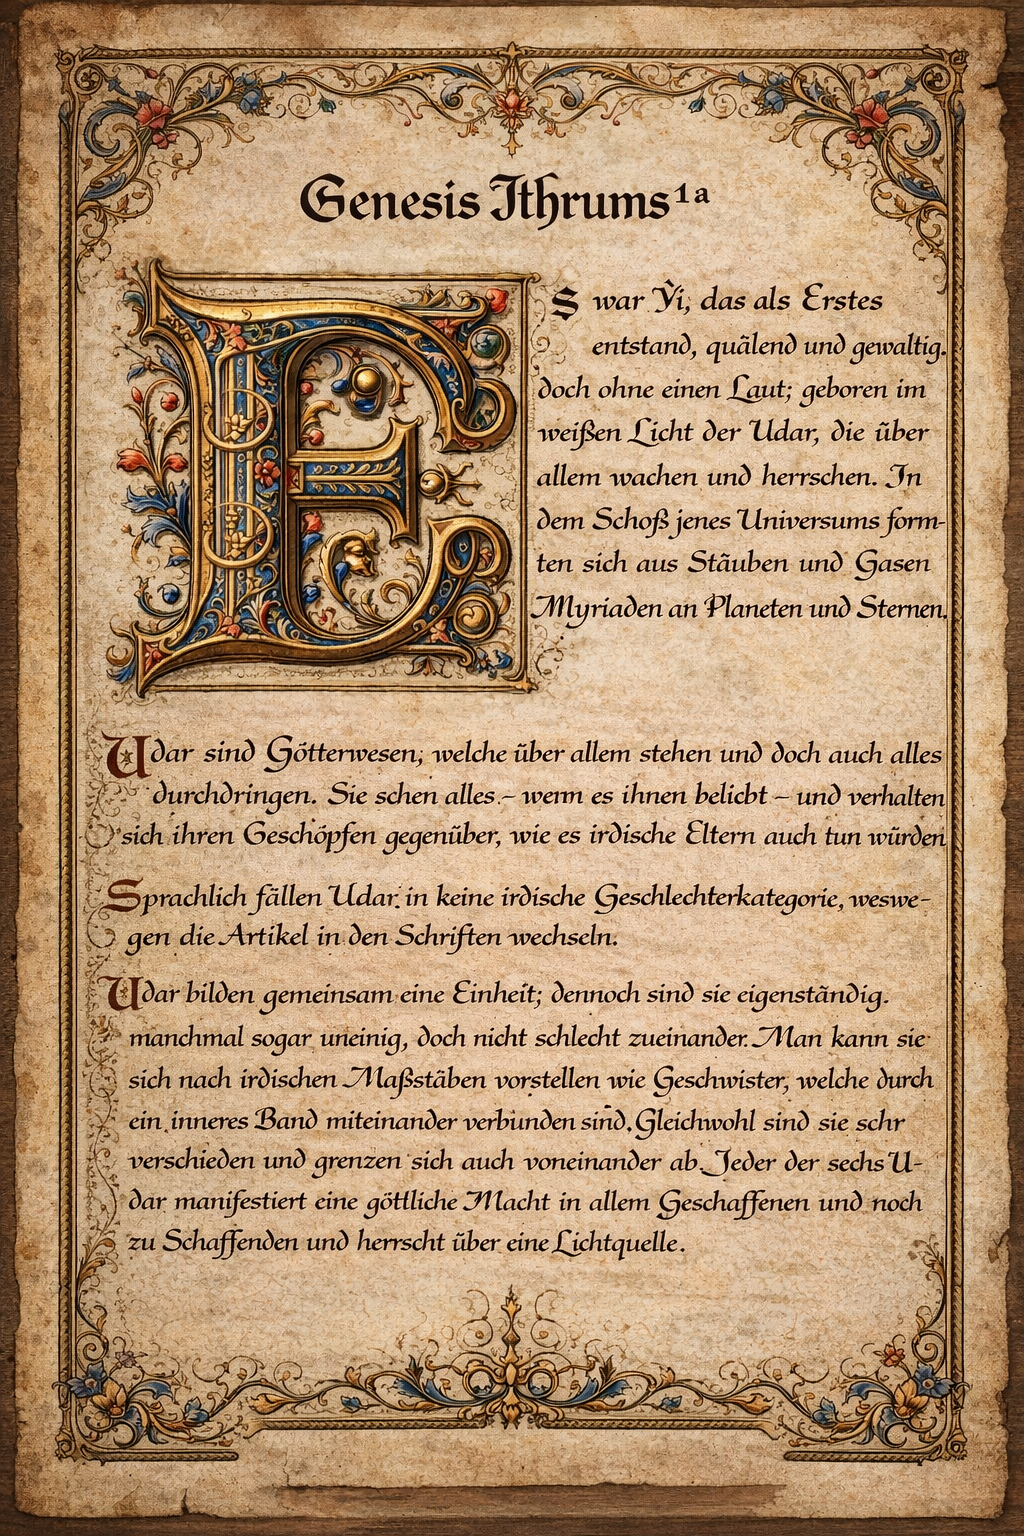 Genesis Ithrums¹ᵃ
Es war Ỳi, das als Erstes
entstand, quälend und gewaltig.
doch ohne einen Laut; geboren im
weißen Licht der Udar, die über
allem wachen und herrschen. In
dem Schoß jenes Universums form-
ten sich aus Stäuben und Gasen
Myriaden an Planeten und Sternen.
Udar sind Götterwesen; welche über allem stehen und doch auch alles
durchdringen. Sie schen alles – wenn es ihnen beliebt – und verhalten
sich ihren Geschöpfen gegenüber, wie es irdische Eltern auch tun würden
Sprachlich fällen Udar in keine irdische Geschlechterkategorie, weswe-
gen die Artikel in den Schriften wechseln.
Udar bilden gemeinsam eine Einheit; dennoch sind sie eigenständig.
manchmal sogar uneinig, doch nicht schlecht zueinander. Man kann sie
sich nach irdischen Maßstäben vorstellen wie Geschwister, welche durch
ein inneres Band miteinander verbunden sind. Gleichwohl sind sie schr
verschieden und grenzen sich auch voneinander ab. Jeder der sechs U-
dar manifestiert eine göttliche Macht in allem Geschaffenen und noch
zu Schaffenden und herrscht über eine Lichtquelle.